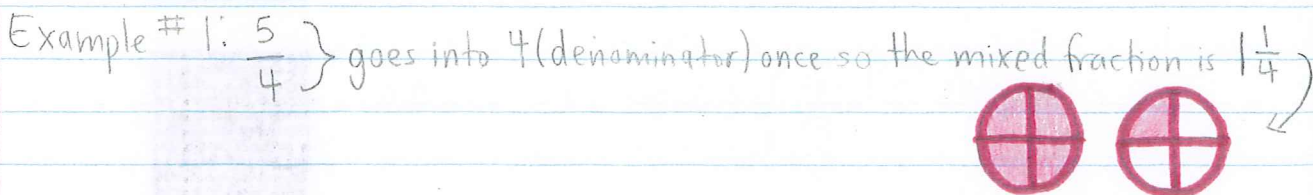 Example #1: 5/4 } goes into 4 (denominator) once so the mixed fraction is 1 1/4